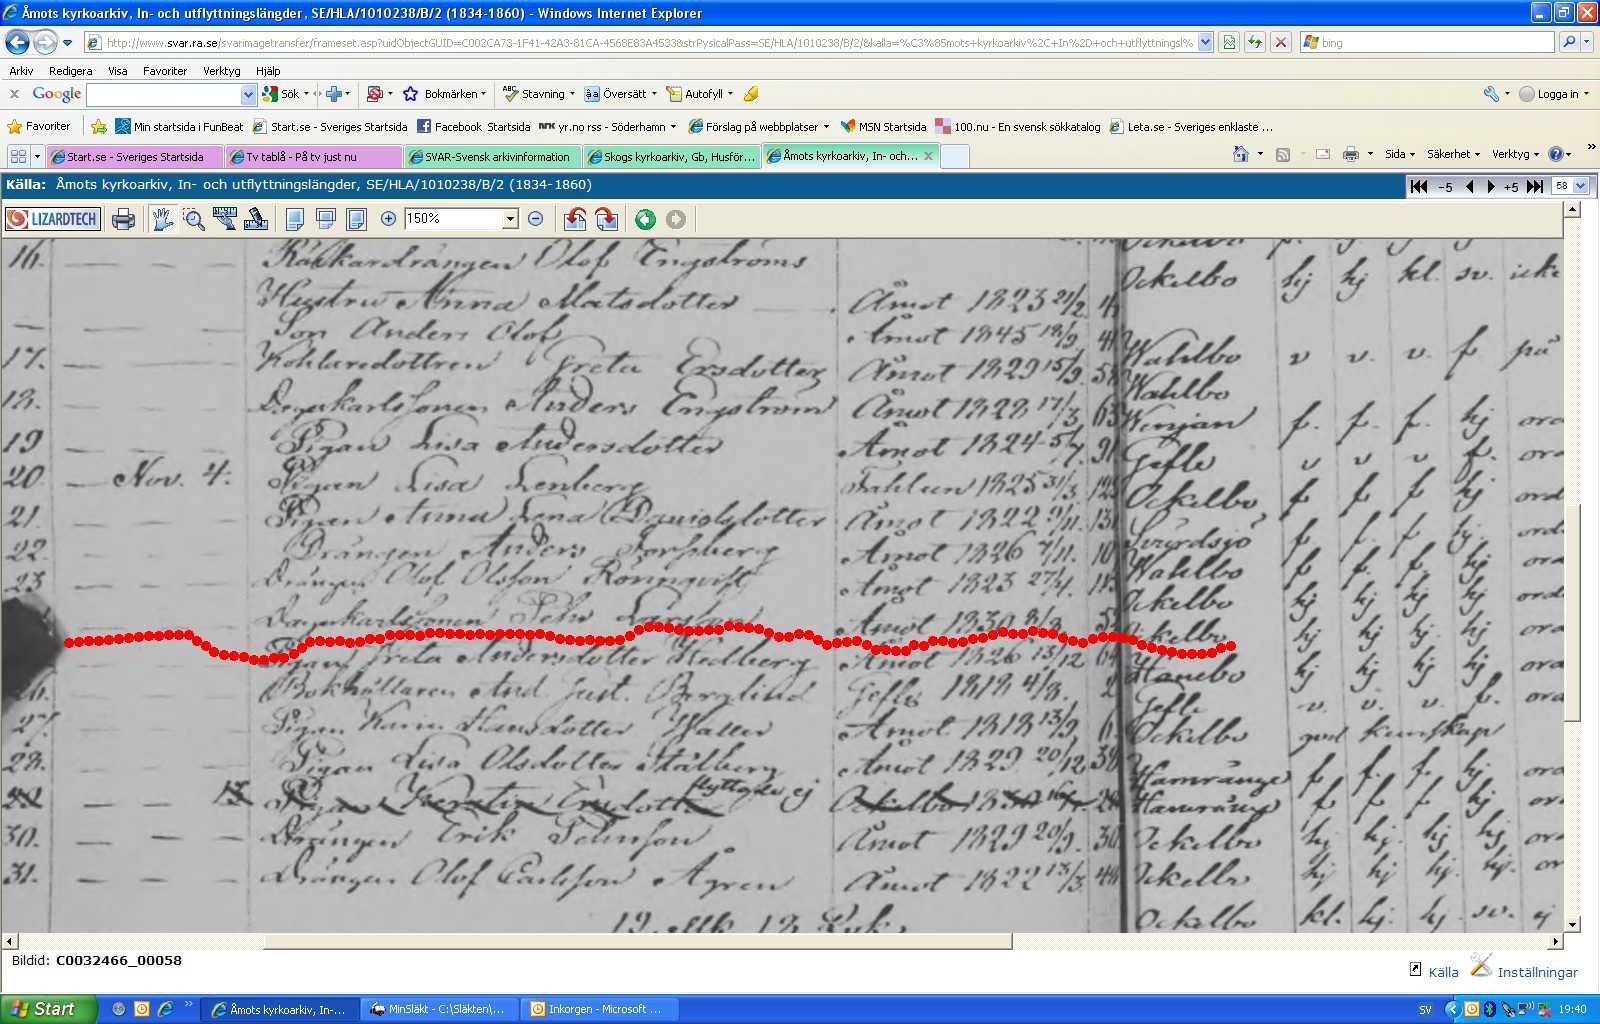 Åmots kyrkoarkiv, In- och utflyttningslängder, SE/HLA/1010238/B/2 (1834-1860) - Windows Internet Explorer
http://www.svar.ra.se/svarimagetransfer/frameset.asp?uidObjectGUID=C002CA73-1F41-42A3-81CA-4568E83A4533&strPysicalPass=SE/HLA/1010238/B/2/&kalla=%C3%85mots+kyrkoarkiv%2C+In%2D+och+utflyttningsl%
bing
Arkiv Redigera Visa Favoriter Verktyg Hjälp
x Google Sök Bokmärken ABC Stavning äa Översätt Autofyll Logga in
Favoriter Min startsida i FunBeat Start.se - Sveriges Startsida Facebook Startsida nrk yr.no rss - Söderhamn Förslag på webbplatser MSN Startsida 100.nu - En svensk sökkatalog Leta.se - Sveriges enklaste ...
Start.se - Sveriges Startsida Tv tablå - På tv just nu SVAR-Svensk arkivinformation Skogs kyrkoarkiv, Gb, Husför... Åmots kyrkoarkiv, In- och... x Sida Säkerhet Verktyg »
Källa: Åmots kyrkoarkiv, In- och utflyttningslängder, SE/HLA/1010238/B/2 (1834-1860) -5 +5 58
LIZARDTECH 150%
16. Olof Engströms Ockelbo hj hj kl. sv. icke
Hustru Anna Matsdotter Åmot 1823 21/2
Son Anders Olof Åmot 1845
17. Kohlaredottren Greta Ersdotter Åmot 1829 15/9 Wahlbo v v. v. f på
Wahlbo
18. Anders Engström Åmot 1828 17/3 63 Wenjan f. f. f. hj ord
19 Pigan Lisa Andersdotter Åmot 1824 5/7 91 Gefle v v v f. ord
20 Nov. 4. Pigan Lisa Lenberg Fahlun 1825 31/3 Ockelbo f f f hj ord
21. Pigan Anna Lena Danielsdotter Åmot 1822 Svärdsjö f. f. f hj. ord
22. Drängen Anders Forsberg Åmot 1826 Wahlbo f. f. f. hj ord
23 Drängen Olof Olsson Rönnqvist Åmot 1823 27/4. Ockelbo hj hj hj hj ord
Ockelbo hj hj hj hj ord
Pigan Greta Andersdotter Hedberg Åmot 1826 13/12 64 Hanebo hj hj hj hj ord
Bokhållaren And. Just. Berglind Gefle 1818 4/8. 2 Gefle v. v. v. f. ord
27. Pigan Karin Hansdotter Waller Åmot 1818 13/9 6. Ockelbo god kunskap
28. Pigan Lisa Olsdotter Stålberg Åmot 1829 20/12 38 Hamrånge f f. f. hj ord
Pigan Kerstin Ersdott. flyttade ej Ockelbo 1830 Hamrånge f f f hj
30. Drängen Erik Jehnson Åmot 1829 20/9. 30 Ockelbo hj hj. hj hj.
31. Drängen Olof Carlsson Ågren Åmot 1822 13/3 48 Ockelbo hj hj hj. hj. or
Ockelbo kl. hj. hj. sv. ej
Bildid: C0032466_00058
Källa Inställningar
Start » Åmots kyrkoarkiv, In-... MinSläkt - C:\Släkten\... Inkorgen - Microsoft ... SV 19:40